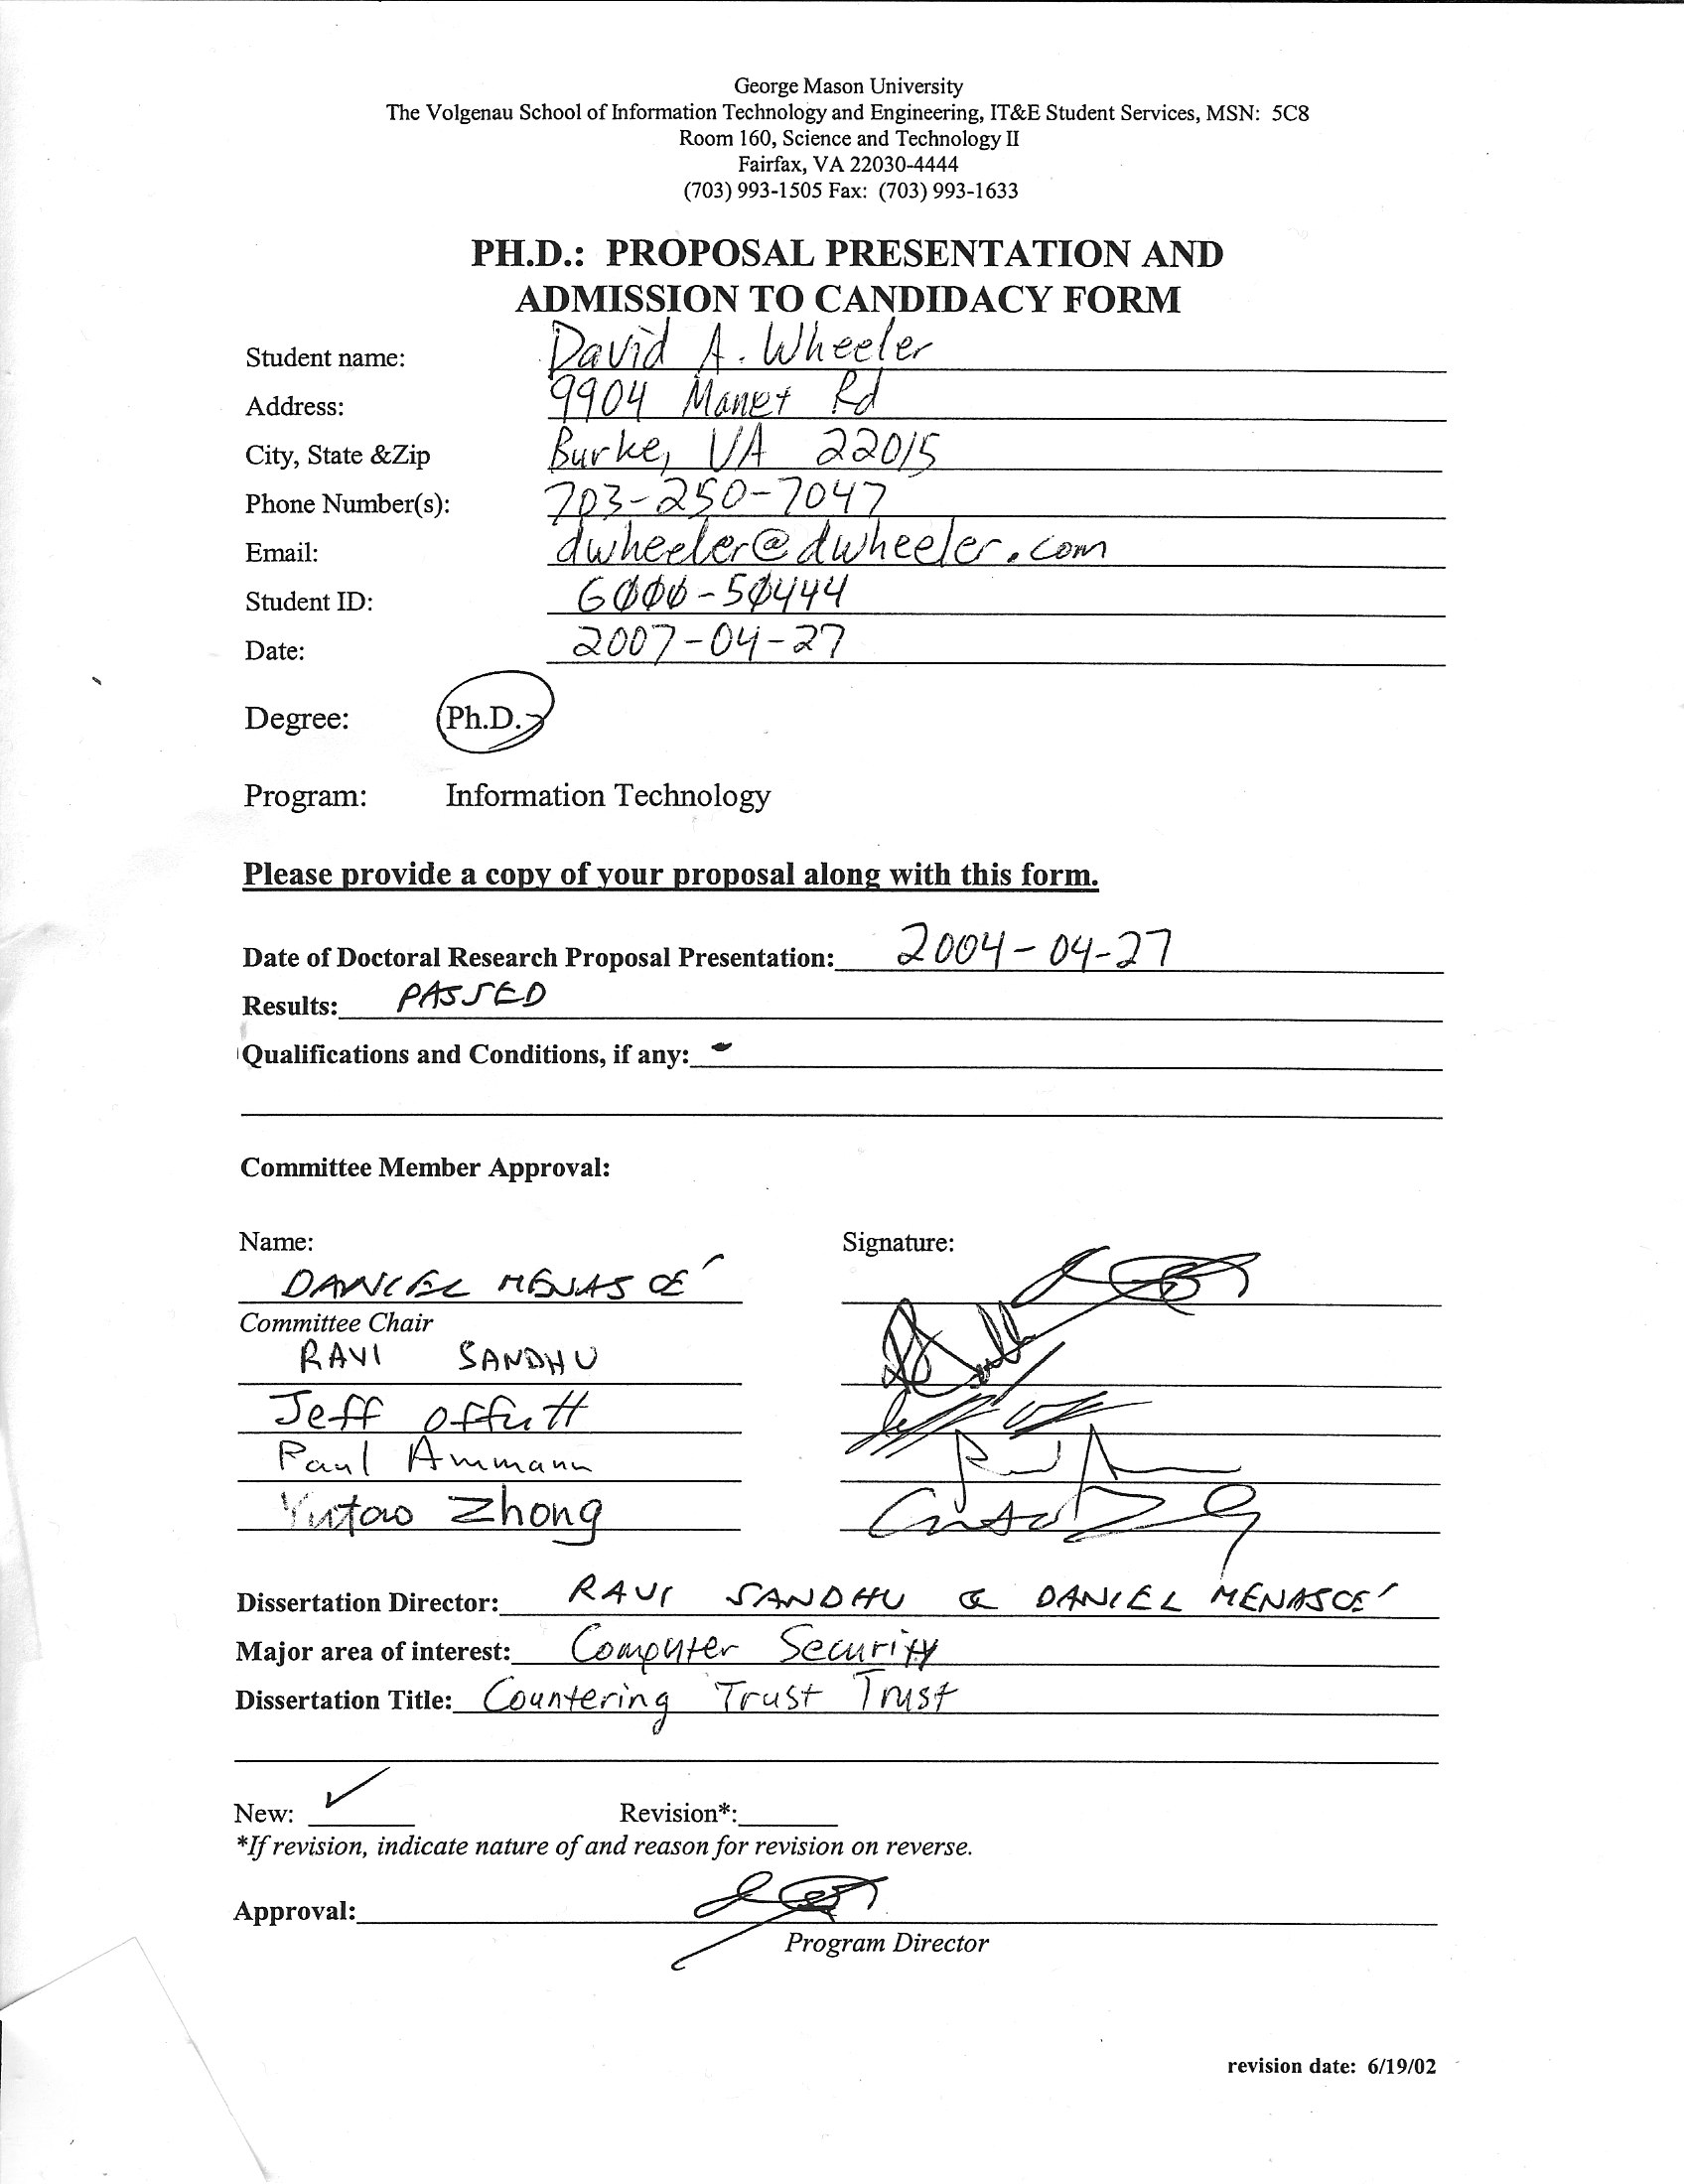 George Mason University
The Volgenau School of Information Technology and Engineering, IT&E Student Services, MSN: 5C8
Room 160, Science and Technology II
Fairfax, VA 22030-4444
(703) 993-1505 Fax: (703) 993-1633
PH.D.: PROPOSAL PRESENTATION AND
ADMISSION TO CANDIDACY FORM
Student name: David A. Wheeler
Address: 9904 Manet Rd
City, State &Zip Burke, VA 22015
Phone Number(s): 703-250-7047
Email: dwheeler@dwheeler.com
Student ID: G000-50444
Date: 2007-04-27
Degree: Ph.D.
Program: Information Technology
Please provide a copy of your proposal along with this form.
Date of Doctoral Research Proposal Presentation: 2004-04-27
Results: PASSED
Qualifications and Conditions, if any: -
Committee Member Approval:
Name: Signature:
DANIEL MENASCÉ
Committee Chair
RAVI SANDHU
Jeff Offutt
Paul Ammann
Yutao Zhong
Dissertation Director: RAVI SANDHU & DANIEL MENASCÉ
Major area of interest: Computer Security
Dissertation Title: Countering Trust Trust
New: ✓ Revision*:
*If revision, indicate nature of and reason for revision on reverse.
Approval:
Program Director
revision date: 6/19/02